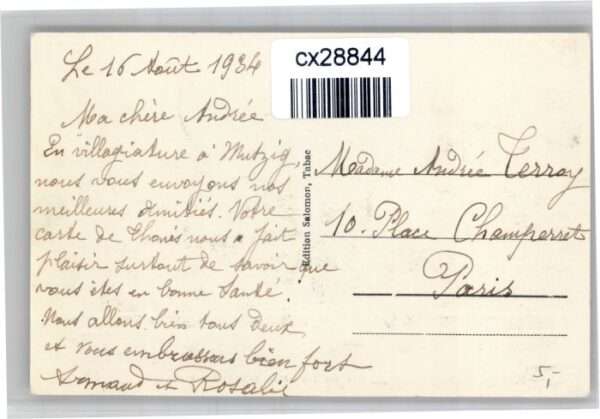 cx28844
Le 16 Août 1934
Ma chère Andrée
En villagiature à Mutzig,
nous vous envoyons nos
meilleures Amitiés. Votre
carte de nous a fait
plaisir surtout de savoir que
vous êtes en bonne Santé.
Nous allons bien tous deux
et vous embrassons bien fort
Armand et Rosalie
Edition Salomon, Tabac
Madame Andrée Terroy
10. Place Champerret
Paris
5,-